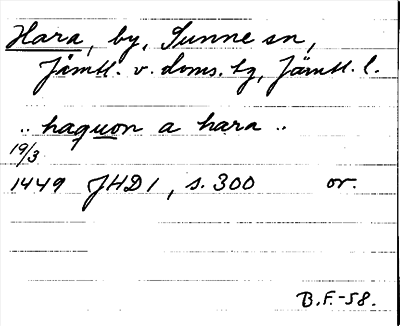 Hara, by, Sunne sn,
Jämtl. v. doms. tg, Jämtl. l.
.. haquon a hara ..
19/3
1449 JHD 1, s. 300 or.
B.F.-58.